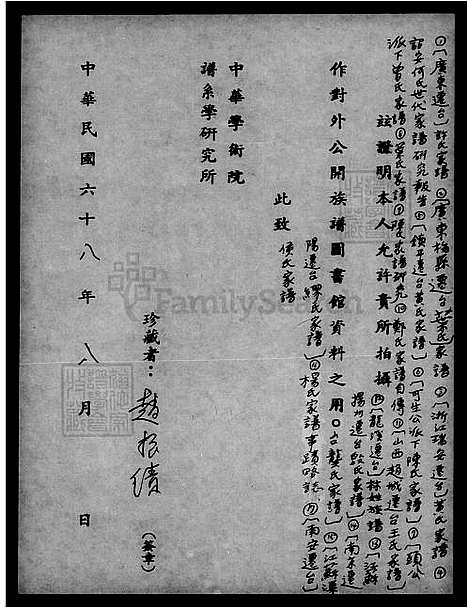 ①〔廣東遷台〕許氏家譜 ②〔廣東梅縣遷台葉氏〕家譜 ③〔浙江瑞安遷台〕黃氏家譜 ④
詔安何氏世代家譜研究報告 ⑤〔鎮平遷台黃氏家譜〕⑥〔可生公派下陳氏家譜〕⑦〔頭公
派下曾氏家譜 ⑧ 葉氏家譜 ⑨ 陳氏家譜研究 ⑩ 鄭氏家譜自傳 ⑪〔山西趙城遷台王氏家譜〕
茲證明本人允許貴所拍攝
⑫〔龍溪遷台〕林姓族譜 ⑬〔江蘇
揚州遷台〕殷氏家譜〕⑭〔南京遷
作對外公開族譜圖書館資料之用
台〕龔氏家譜〕⑮〔江蘇溧
陽遷台〕繆氏家譜〕⑯ 楊氏家譜事蹟略誌 ⑰〔南安遷台〕
侯氏家譜
此致
中華學術院
譜系學研究所
珍藏者：趙振績（簽章）
中華民國六十八年 八月 日
FamilySearch